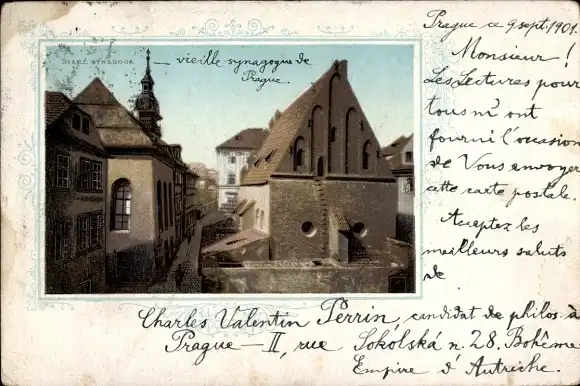 Prague ce 9 sept. 1901.
Monsieur!
Les Lectures pour
tous m'ont
fourni l'occasion
de Vous envoyer
cette carte postale.
Acceptez les
meilleurs saluts
de
STARÁ SYNAGOGA
— vieille synagogue de
Prague!
Charles Valentin Perrin, candidat de philos. à
Prague — II, rue Sokolská n. 28. Bohême
Empire d'Autriche.